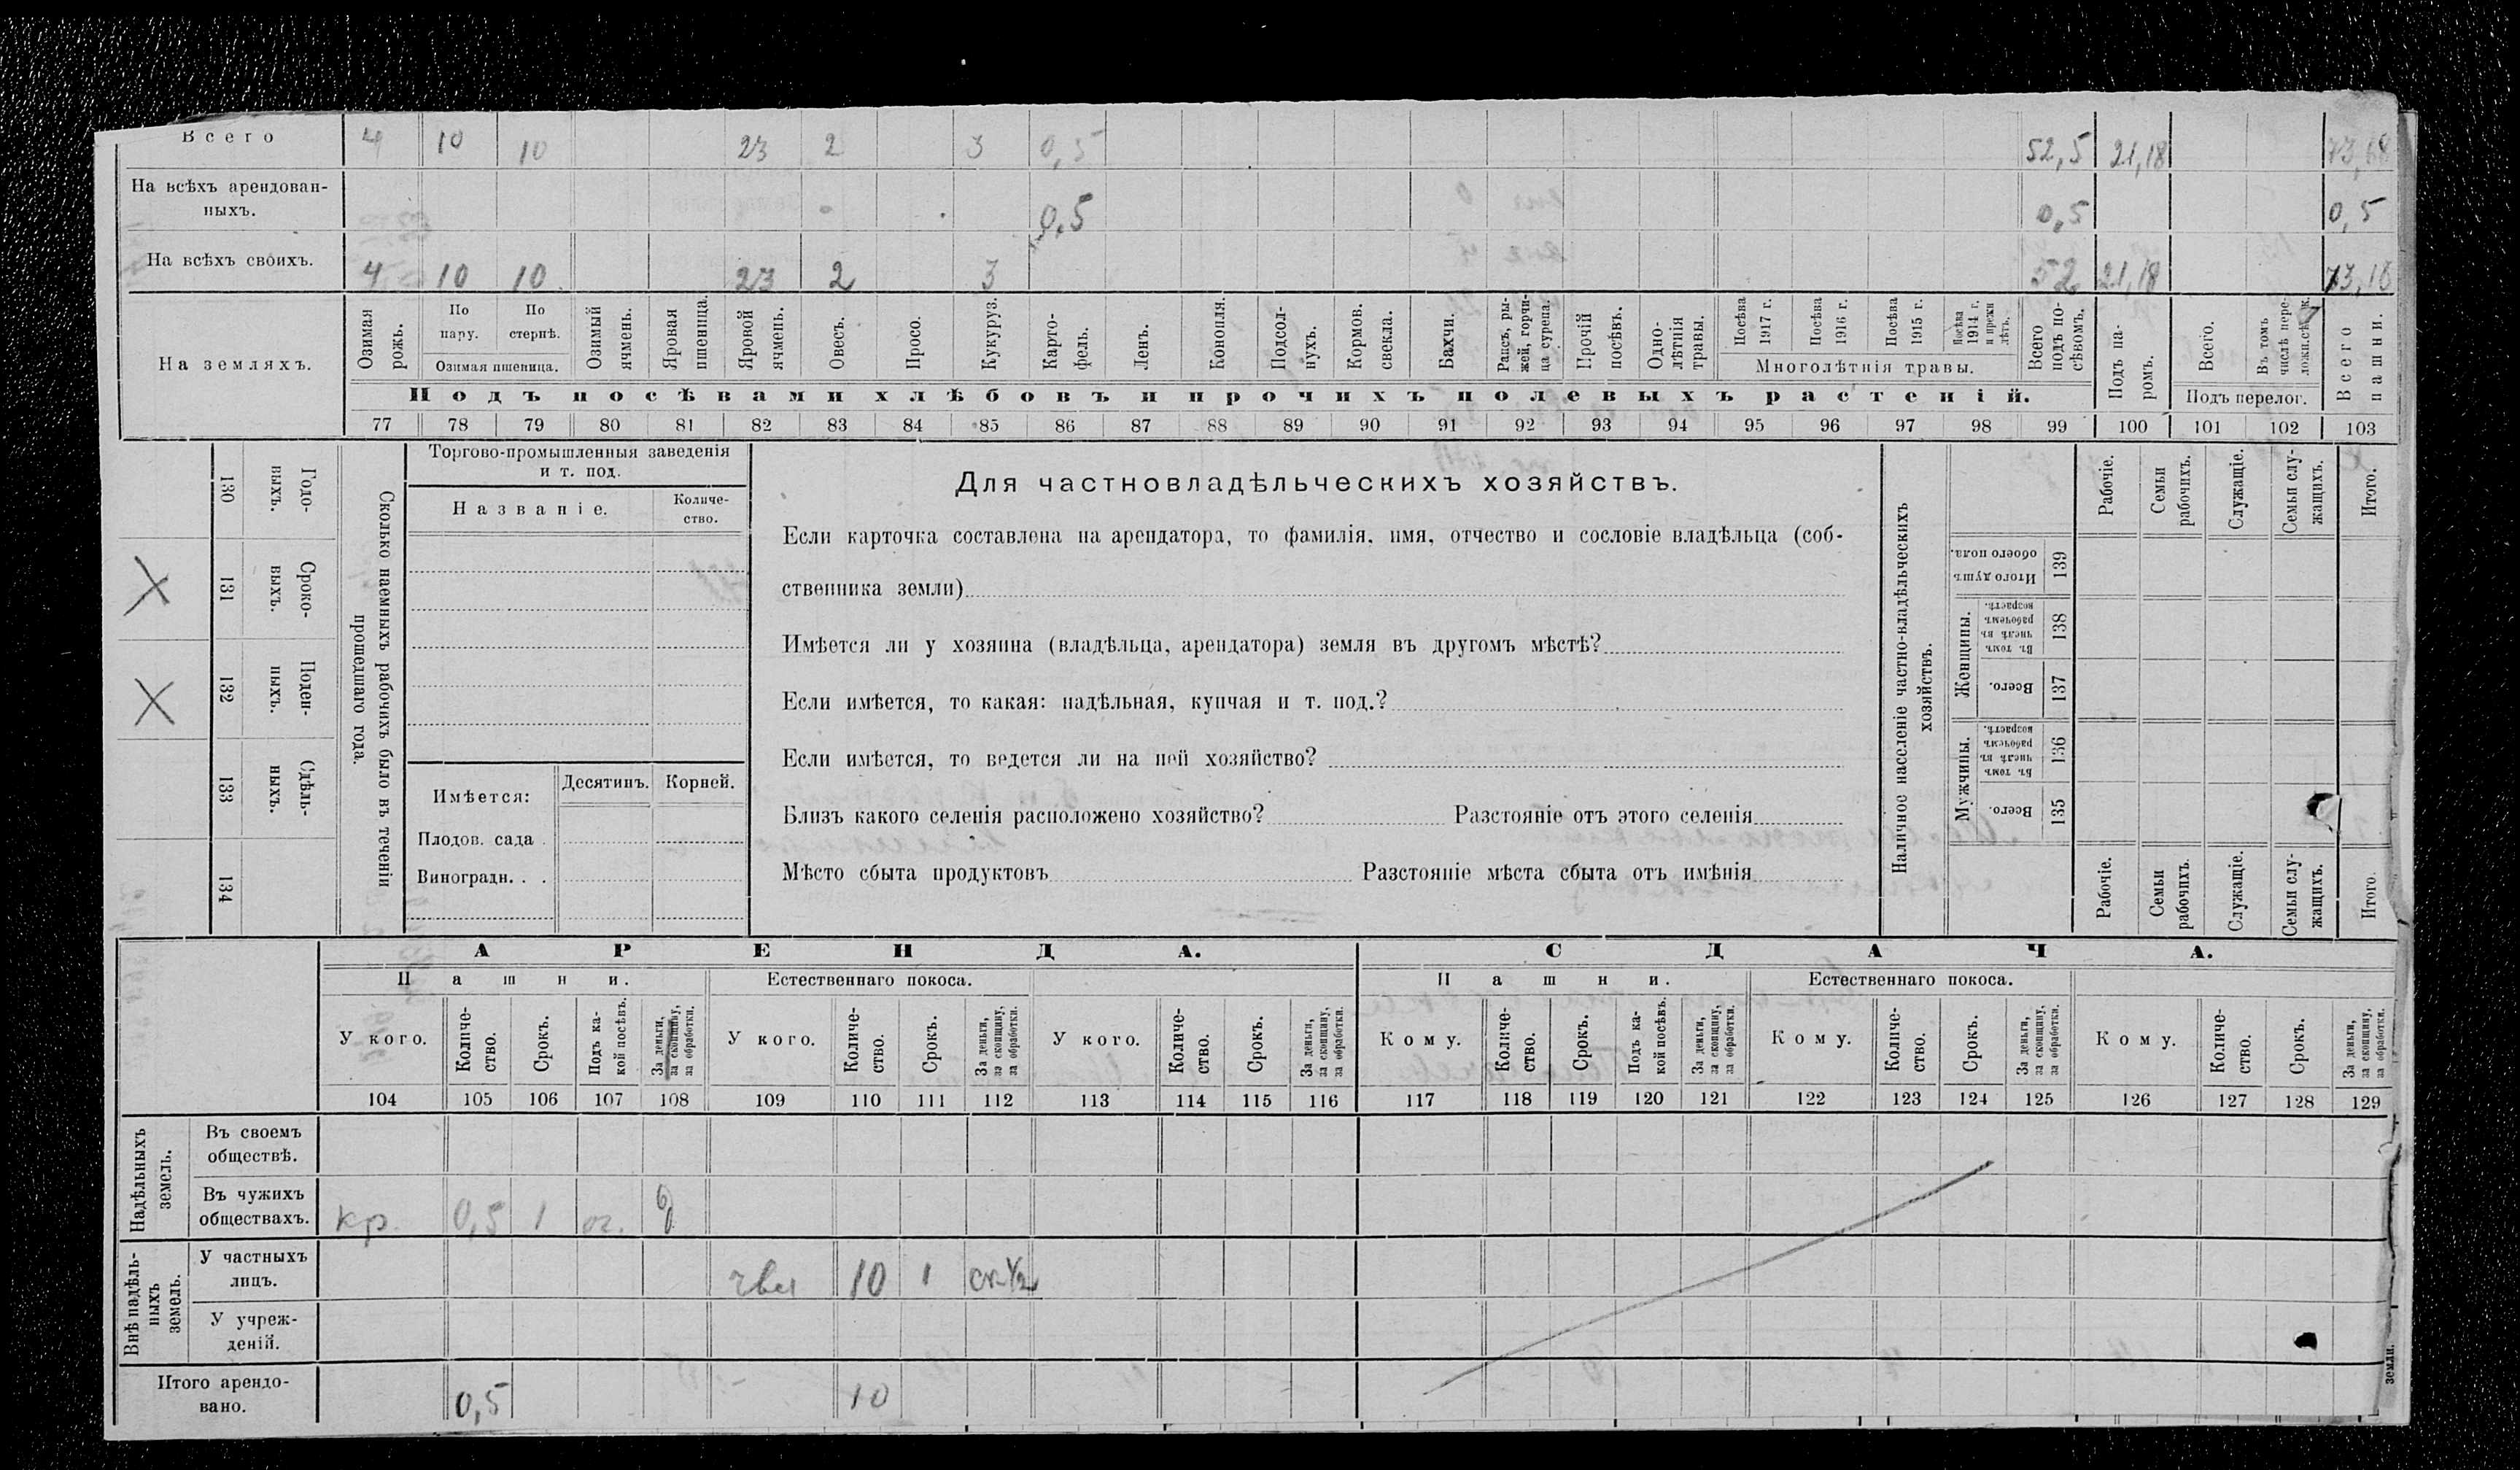 Всего 4 10 10 23 2 3 0,5 52,5 21,18 73,68
На всѣхъ арендован-
ныхъ. 0,5 0,5 0,5
На всѣхъ своихъ. 4 10 10 23 2 3 52 21,18 73,18
На земляхъ.
Озимая рожь.
По пару.
По стернѣ.
Озимая пшеница.
Озимый ячмень.
Яровая пшеница.
Яровой ячмень.
Овесъ.
Просо.
Кукуруз.
Карто-
фель.
Ленъ.
Конопля.
Подсол-
нухъ.
Кормов.
свекла.
Бахчи.
Рапсъ, ры-
жей, горчи-
ца сурепа.
Прочій посѣвъ.
Одно-
лѣтнія травы.
Посѣва 1917 г.
Посѣва 1916 г.
Посѣва 1915 г.
Посѣва 1914 г. и прежн лѣтъ.
Многолѣтнія травы.
Всего подъ по-
сѣвомъ.
Подъ па-
ромъ.
Всего.
Въ томъ числѣ пере-
Подъ перелог.
Всего пашни.
Подъ посѣвами хлѣбовъ и прочихъ полевыхъ растеній.
77 78 79 80 81 82 83 84 85 86 87 88 89 90 91 92 93 94 95 96 97 98 99 100 101 102 103
Сколько наемныхъ рабочихъ было въ теченіи
прошедшаго года.
Годо-
выхъ.
130
Сроко-
выхъ.
131
X
Поден-
ныхъ.
132
X
Сдѣль-
ныхъ.
133
134
Торгово-промышленныя заведенія
и т. под.
Названіе.
Количе-
ство.
Имѣется:
Десятинъ. Корней.
Плодов. сада .
Виноградн. . .
Для частновладѣльческихъ хозяйствъ.
Если карточка составлена на арендатора, то фамилія, имя, отчество и сословіе владѣльца (соб-
ственника земли)
Имѣется ли у хозяина (владѣльца, арендатора) земля въ другомъ мѣстѣ?
Если имѣется, то какая: надѣльная, купчая и т. под.?
Если имѣется, то ведется ли на ней хозяйство?
Близъ какого селенія расположено хозяйство? Разстояніе отъ этого селенія
Мѣсто сбыта продуктовъ Разстояніе мѣста сбыта отъ имѣнія
Наличное населеніе частно-владѣльческихъ
хозяйствъ.
Рабочіе.
Семьи рабочихъ.
Служащіе.
Семьи слу-
жащихъ.
Итого.
Итого душъ
обоего пола.
139
Женщины.
Въ томъ числѣ въ рабочемъ возрастѣ.
138
Всего.
137
Мужчины.
Въ томъ числѣ въ рабочемъ возрастѣ.
136
Всего.
135
Рабочіе.
Семьи рабочихъ.
Служащіе.
Семьи слу-
жащихъ.
Итого.
АРЕНДА. СДАЧА.
Пашни. Естественнаго покоса. Пашни. Естественнаго покоса.
У кого.
Количе-
ство.
Срокъ.
Подъ ка-
кой посѣвъ.
За деньги, за скопщину, за обработки.
У кого.
Количе-
ство.
Срокъ.
За деньги, за скопщину, за обработки.
У кого.
Количе-
ство.
Срокъ.
За деньги, за скопщину, за обработки.
Кому.
Количе-
ство.
Срокъ.
Подъ ка-
кой посѣвъ.
За деньги, за скопщину, за обработки.
Кому.
Количе-
ство.
Срокъ.
За деньги, за скопщину, за обработки.
Кому.
Количе-
ство.
Срокъ.
За деньги, за скопщину, за обработки.
104 105 106 107 108 109 110 111 112 113 114 115 116 117 118 119 120 121 122 123 124 125 126 127 128 129
Надѣльныхъ
земель.
Въ своемъ
обществѣ.
Въ чужихъ
обществахъ. кр. 0,5 1 ог.
Внѣ надѣль-
ныхъ
земель.
У частныхъ
лицъ. 10 1 ск ½
У учреж-
деній.
Итого арендо-
вано. 0,5 10
земли.